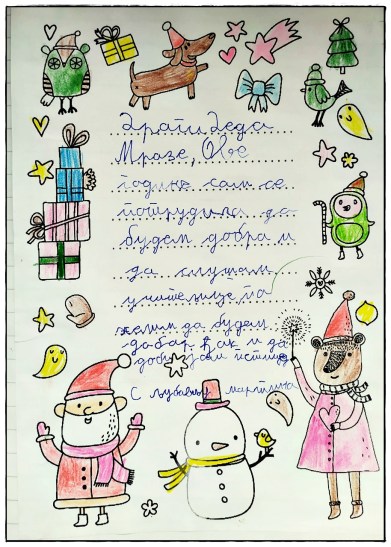 Драги Деда
Мразе, Ове
године сам се
потрудила да
будем добра и
да слушам
учитељице па
желим да будем
добар ђак и да
добијем петице
С љубављу Мартина